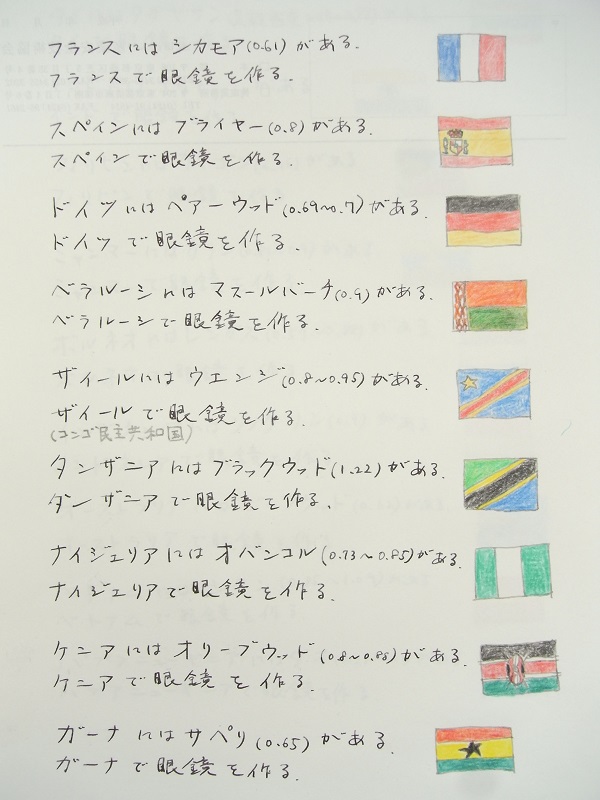 フランスには シカモア(0.61)がある.
フランスで眼鏡を作る.
スペインには ブライヤー(0.8)がある.
スペインで眼鏡を作る.
ドイツには ペアーウッド(0.69~0.7)がある.
ドイツで眼鏡を作る.
ベラルーシには マスールバーチ(0.9)がある.
ベラルーシで眼鏡を作る.
ザイールには ウエンジ(0.8~0.95)がある.
ザイールで眼鏡を作る.
(コンゴ民主共和国)
タンザニアにはブラックウッド(1.22)がある.
タンザニアで眼鏡を作る.
ナイジェリアには オバンコル(0.73~0.85)がある.
ナイジェリアで眼鏡を作る.
ケニアには オリーブウッド(0.8~0.88)がある.
ケニアで眼鏡を作る.
ガーナには サペリ(0.65)がある.
ガーナで眼鏡を作る.